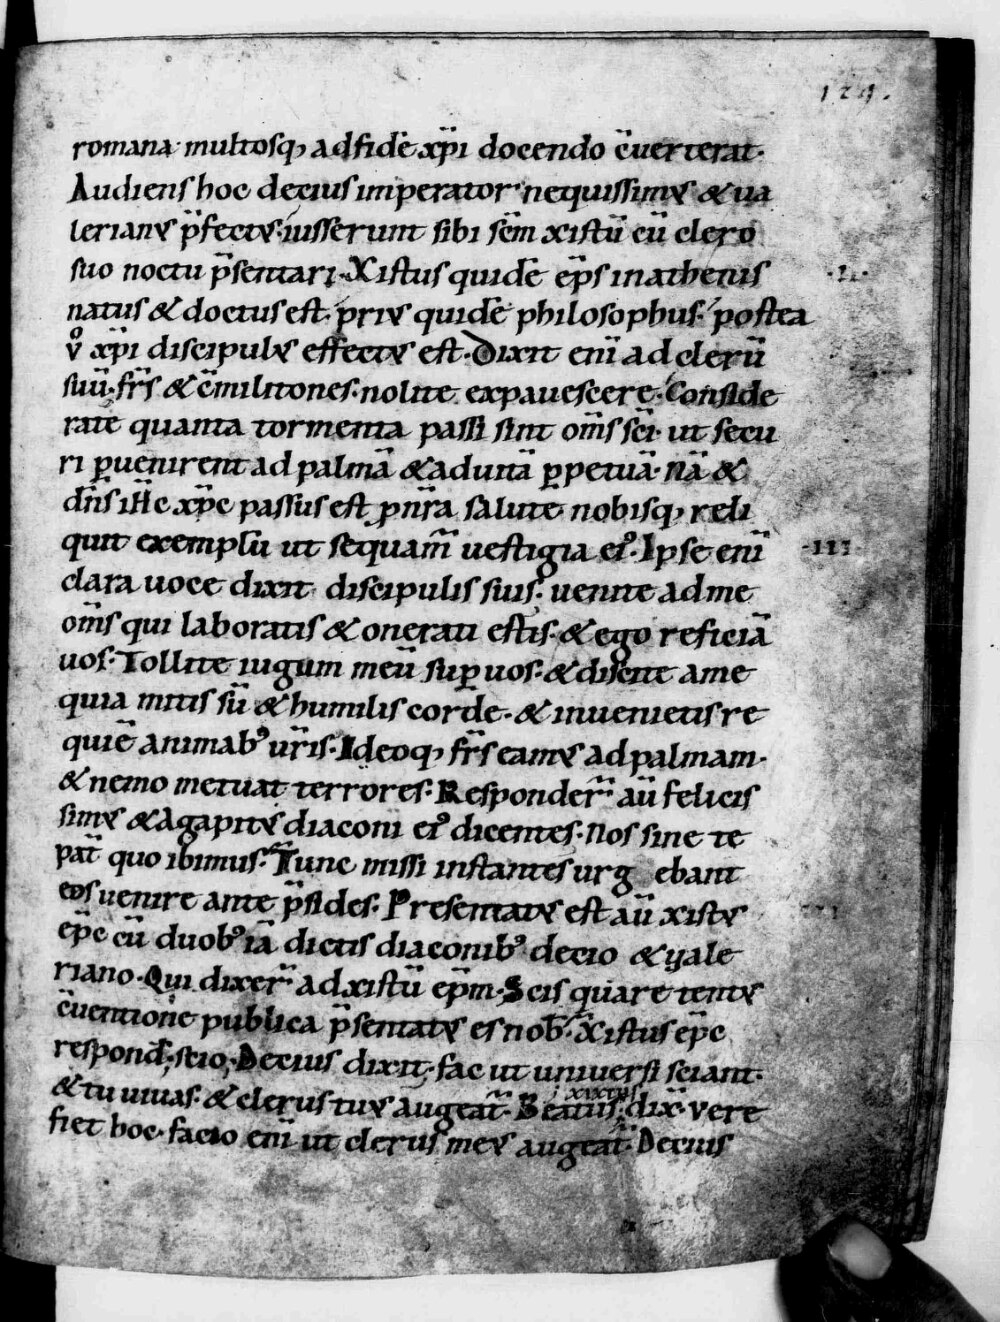 124.
romana· multosq, ad fidē xp̄i docendo c̄uerterat·
Audiens hoc decius imperator nequissimꝰ & ua
lerianꝰ p̄fectꝰ· iusserunt sibi sc̄m xistū cū clero
suo noctu p̄sentari· Xistus quidē ep̄s in athenis ·I·
natus & doctus est· priꝰ quidē philosophus· postea
v° xp̄i discipulꝰ effectꝰ est· Dixit eni̅ ad clerū
suū· fr̄s & c̄militones· nolite expauescere· Conside
rate quanta tormenta passi sint om̄s sc̄i· ut secu
ri ꝑuenirent ad palmā & ad uitā ꝑpetuā· Nā &
dn̄s ih̄c xp̄c passus est ꝓ nr̄a salute nobisq, reli
quit exemplū ut sequam̄ uestigia eiꝰ· Ipse eni̅ ·III·
clara uoce dixit discipulis suis· uenite ad me
om̄s qui laboratis & onerati estis· & ego reficiā
uos· Tollite iugum meū suꝑ uos· & discite a me
quia mitis sū & humilis corde· & inuenietis re
quiē animabꝰ ur̄is· Ideoq, fr̄s eamꝰ ad palmam·
& nemo metuat terrores· Responder̄ aū felicis
simꝰ & Agapitꝰ diaconi eiꝰ dicentes· Nos sine te
pat̄ quo ibimus· Tunc missi instantes urg ebant
eos uenire ante p̄sides· Presentatꝰ est aū xistꝰ
ep̄c cū duobꝰ iā dictis diaconibꝰ decio & uale
riano· Qui dixer̄ ad xistū ep̄m· Scis quare tentꝰ
c̄uentione publica p̄sentatꝰ es nob̄· Xistus ep̄c
respond̄· scio· Decius dixit· fac ut uniuersi sciant·
& tu uiuas· & clerus tuꝰ augeat̄· Beatus xixtus dix̄· vere
fiet hoc· facio eni̅ ut clerus meꝰ augeat̄· Decius